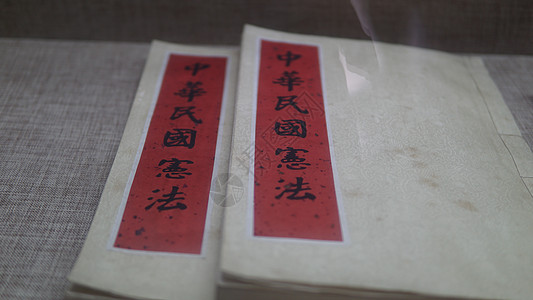 中華民國憲法
中華民國憲法